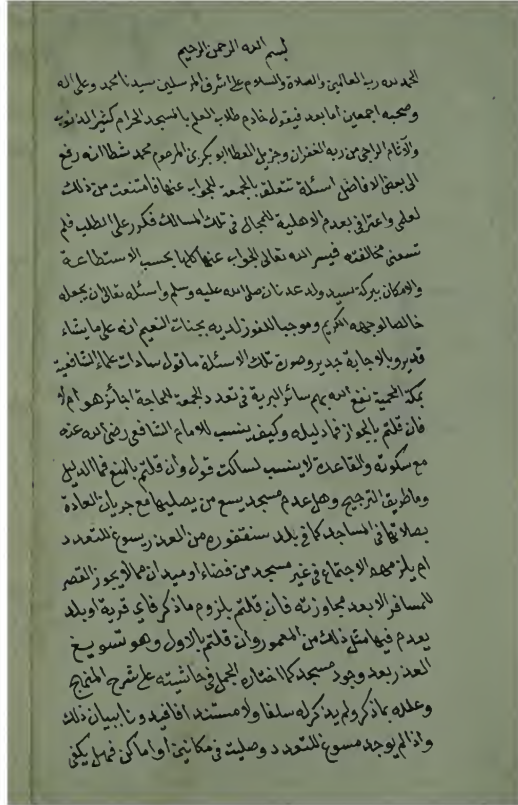 بسم الله الرحمن الرحيم
الحمد لله رب العالمين والصلاة والسلام على اشرف المرسلين سيدنا محمد وعلى اله
وصحبه اجمعين أما بعد فيقول خادم طلاب العلم بالمسجد الحرام كثير الذنوب
والآثام الراجي من ربه الغفران وجزيل العطا ابو بكر بن المرحوم محمد شطا انه رفع
الى بعض الافاضل اسئلة تتعلق بالجمعة للجواب عنها فامتنعت من ذلك
لعلمي واعترافي بعدم الاهلية للمجال في تلك المسالك فكرر علي الطلب فلم
تسعني مخالفته فيسر الله تعالى الجواب عنها كلها بحسب الاستطاعة
والامكان ببركة سيد ولد عدنان صلى الله عليه وسلم واسئله تعالى ان يجعله
خالصا لوجهه الكريم وموجبا للفوز لديه بجنات النعيم انه على ما يشاء
قدير وبالاجابة جدير وصورة تلك الاسئلة ما قول سادات علماء الشافعية
بمكة المحمية نفع الله بهم سائر البرية في تعدد الجمعة للحاجة اجائز هو ام لا
فان قلتم بالجواز فما دليله وكيف ينسب للامام الشافعي رضي الله عنه
مع سكوته والقاعدة لا ينسب لساكت قول وان قلتم بالمنع فما الدليل
وما طريق الترجيح وهل عدم مسجد يسع من يصليها مع جريان العادة
بصلاتها في المساجد كما في بلد سنقفوره من العذر يسوغ للتعدد
ام يلزمهم الاجتماع في غير مسجد من فضاء او ميدان مما لا يجوز القصر
للمسافر الا بعد مجاوزته فان قلتم بلزوم ما ذكر فاي قرية او بلد
يعدم فيها مثل ذلك من المعمور وان قلتم بالاول وهو تسويغ
العذر بعدم وجود مسجد كما اختاره الجمل في حاشيته على شرح المنهج
وعلله بما ذكر ولم يذكر له سلفا ولا مستندا فافيدونا ببيان ذلك
واذا لم يوجد مسوغ للتعدد وصليت في مكانين او اماكن فهل يكفي